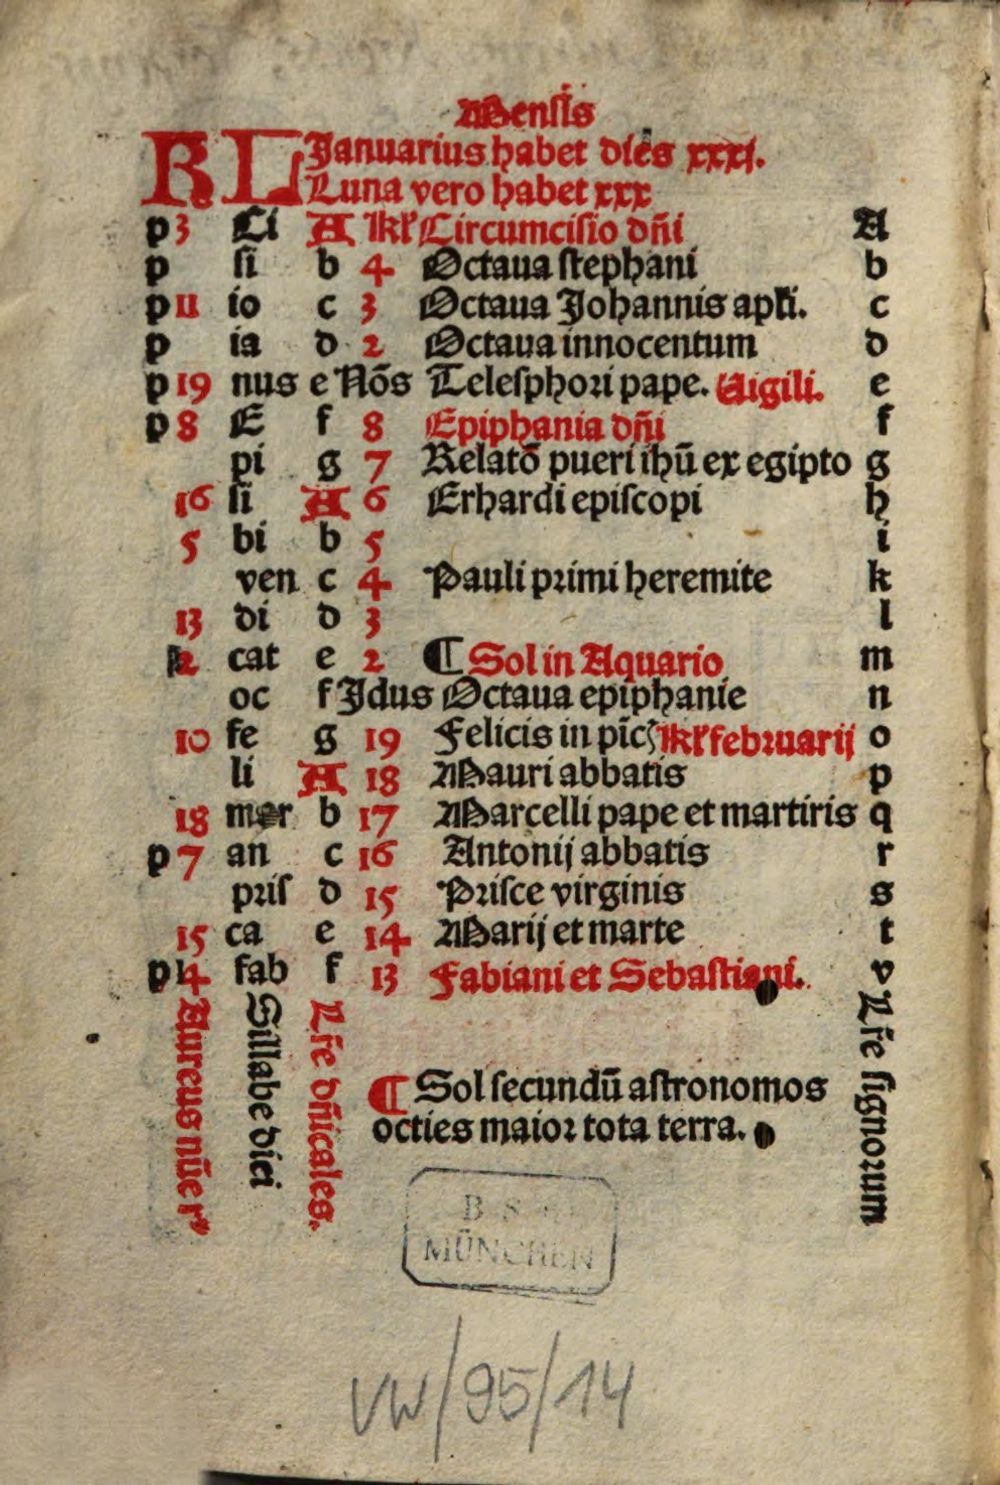 Mensis
KL Januarius habet dies xxxj.
Luna vero habet xxx
p 3 Ci A kl̕ Circumcisio dñi A
p si b 4 Octaua stephani b
p 11 io c 3 Octaua Johannis apli. c
p ia d 2 Octaua innocentum d
p 19 nus e Nōs Telesphori pape. Uigili. e
p 8 E f 8 Epiphania dñi f
pi g 7 Relatō pueri ihū ex egipto g
16 si A 6 Erhardi episcopi h
5 bi b 5 i
ven c 4 Pauli primi heremite k
13 di d 3 l
2 cat e 2 ¶ Sol in Aquario m
oc f Jdus Octaua epiphanie n
10 fe g 19 Felicis in pīc kl̕ februarij o
li A 18 Mauri abbatis p
18 mar b 17 Marcelli pape et martiris q
p 7 an c 16 Antonij abbatis r
pris d 15 Prisce virginis s
15 ca e 14 Marij et marte t
p 4 fab f 13 Fabiani et Sebastiani. v
Aureus nūer᷒
Sillabe dici
Lr̄e dñicales.
Lr̄e signorum
¶ Sol secundū astronomos
octies maior tota terra.
B S
MÜNCHEN
VW/95/14